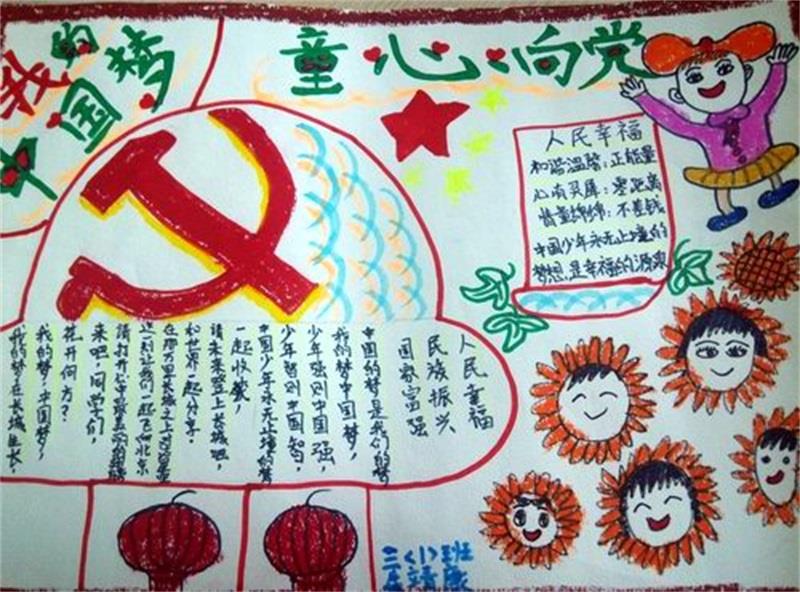 我的
中国梦
童心向党
人民幸福
和谐温馨：正能量
心有灵犀：零距离
情意绵绵：不差钱
中国少年永无止境的
梦想，是幸福的源泉
人民幸福
民族振兴
国家富强
中国的梦是我们的梦
我的梦中国梦，
少年强则中国强，
少年智则中国智，
中国少年永无止境的梦
一起收藏，
请未来登上长城吧，
和世界一起分享。
在那万里长城之上
这一刻让我们一起飞向北京
请打开
来吧，同学们，
花开何方？
我的梦，中国梦，
我的梦在长城生长，
三〈1〉班